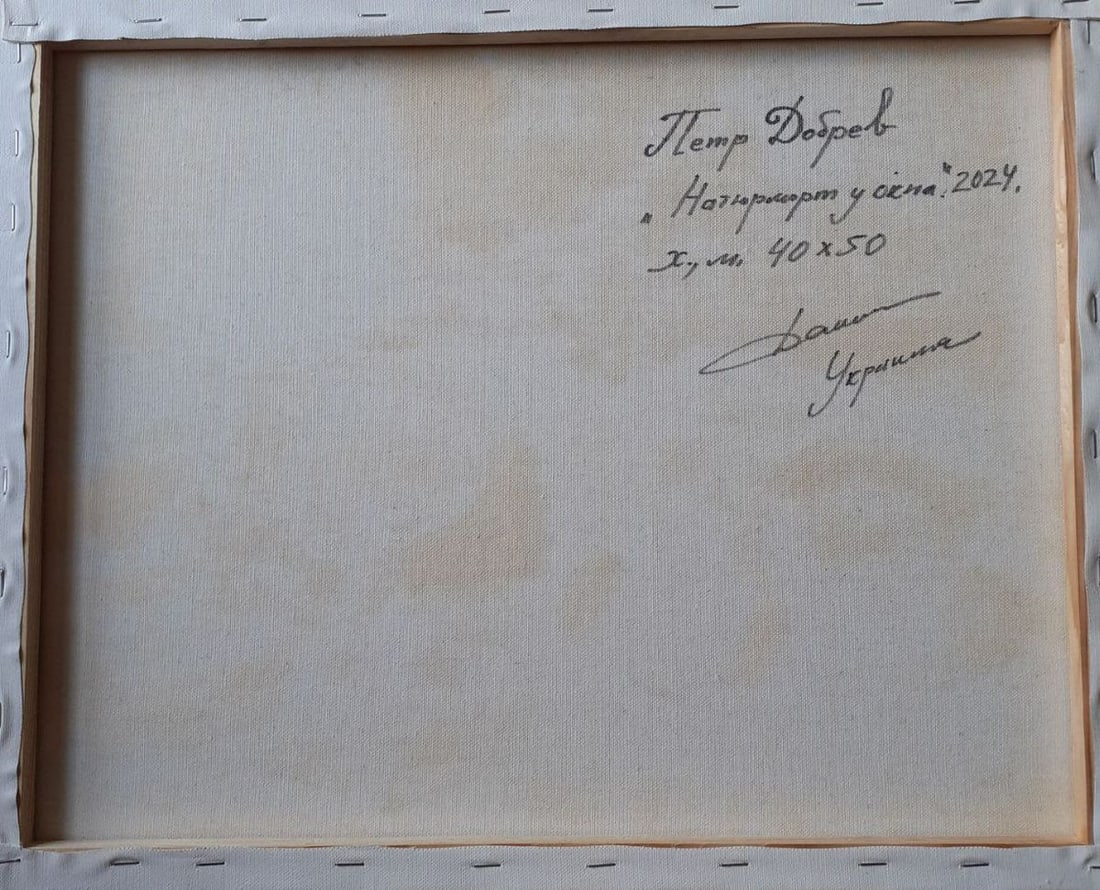 Петр Добрев
„Натюрморт у окна". 2024.
х., м. 40 x 50
Украина